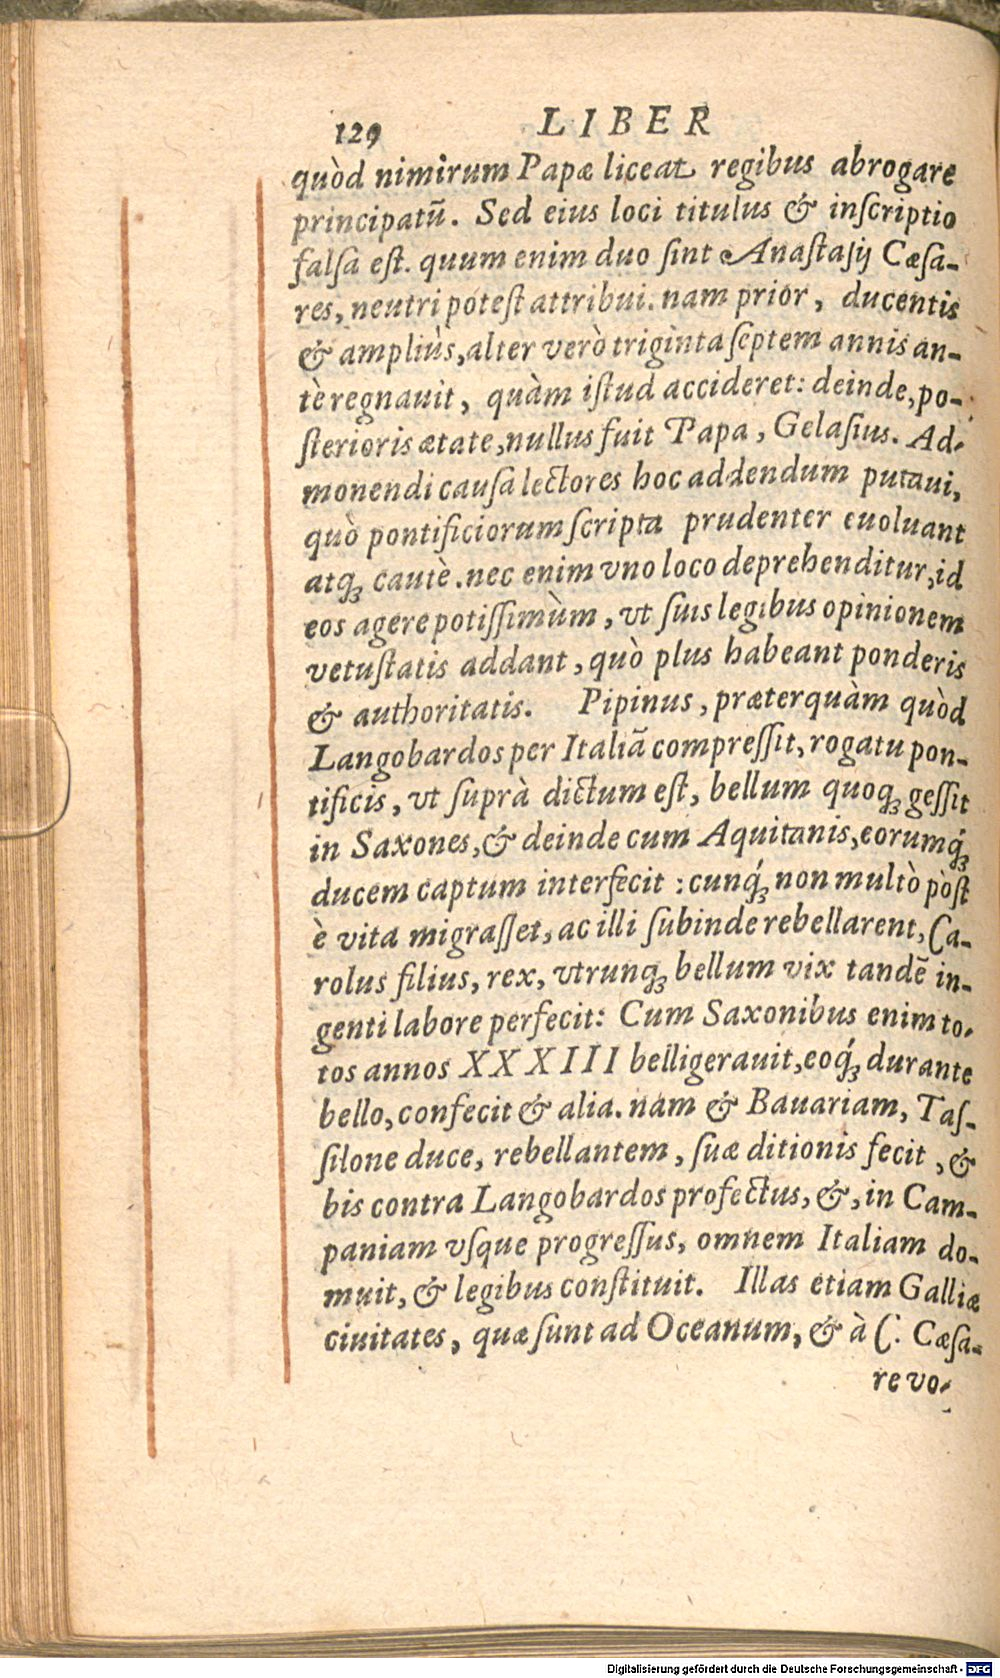 129 LIBER
quòd nimirum Papæ liceat regibus abrogare
principatũ. Sed eius loci titulus & inſcriptio
falſa eſt. quum enim duo ſint Anaſtaſij Cæſa-
res, neutri poteſt attribui. nam prior, ducentis
& ampliùs, alter verò triginta ſeptem annis an-
tè regnauit, quàm iſtud accideret: deinde, po-
ſterioris ætate, nullus fuit Papa, Gelaſius. Ad-
monendi cauſa lectores hoc addendum putaui,
quò pontificiorum ſcripta prudenter euoluant
atqꝫ cautè. nec enim vno loco deprehenditur, id
eos agere potiſſimùm, vt ſuis legibus opinionem
vetuſtatis addant, quò plus habeant ponderis
& authoritatis. Pipinus, præterquàm quòd
Langobardos per Italiã compreſſit, rogatu pon-
tificis, vt ſuprà dictum eſt, bellum quoqꝫ geſſit
in Saxones, & deinde cum Aquitanis, eorumq́ꝫ
ducem captum interfecit: cunq́ꝫ non multò pòſt
è vita migraſſet, ac illi ſubinde rebellarent, Ca-
rolus filius, rex, vtrunqꝫ bellum vix tandẽ in-
genti labore perfecit: Cum Saxonibus enim to-
tos annos XXXIII belligerauit, eoq́ꝫ durante
bello, confecit & alia. nam & Bauariam, Taſ-
ſilone duce, rebellantem, ſuæ ditionis fecit, &
bis contra Langobardos profectus, &, in Cam-
paniam vſque progreſſus, omnem Italiam do-
muit, & legibus conſtituit. Illas etiam Galliæ
ciuitates, quæ ſunt ad Oceanum, & à C. Cæſa-
re vo-
Digitalisierung gefördert durch die Deutsche Forschungsgemeinschaft - DFG